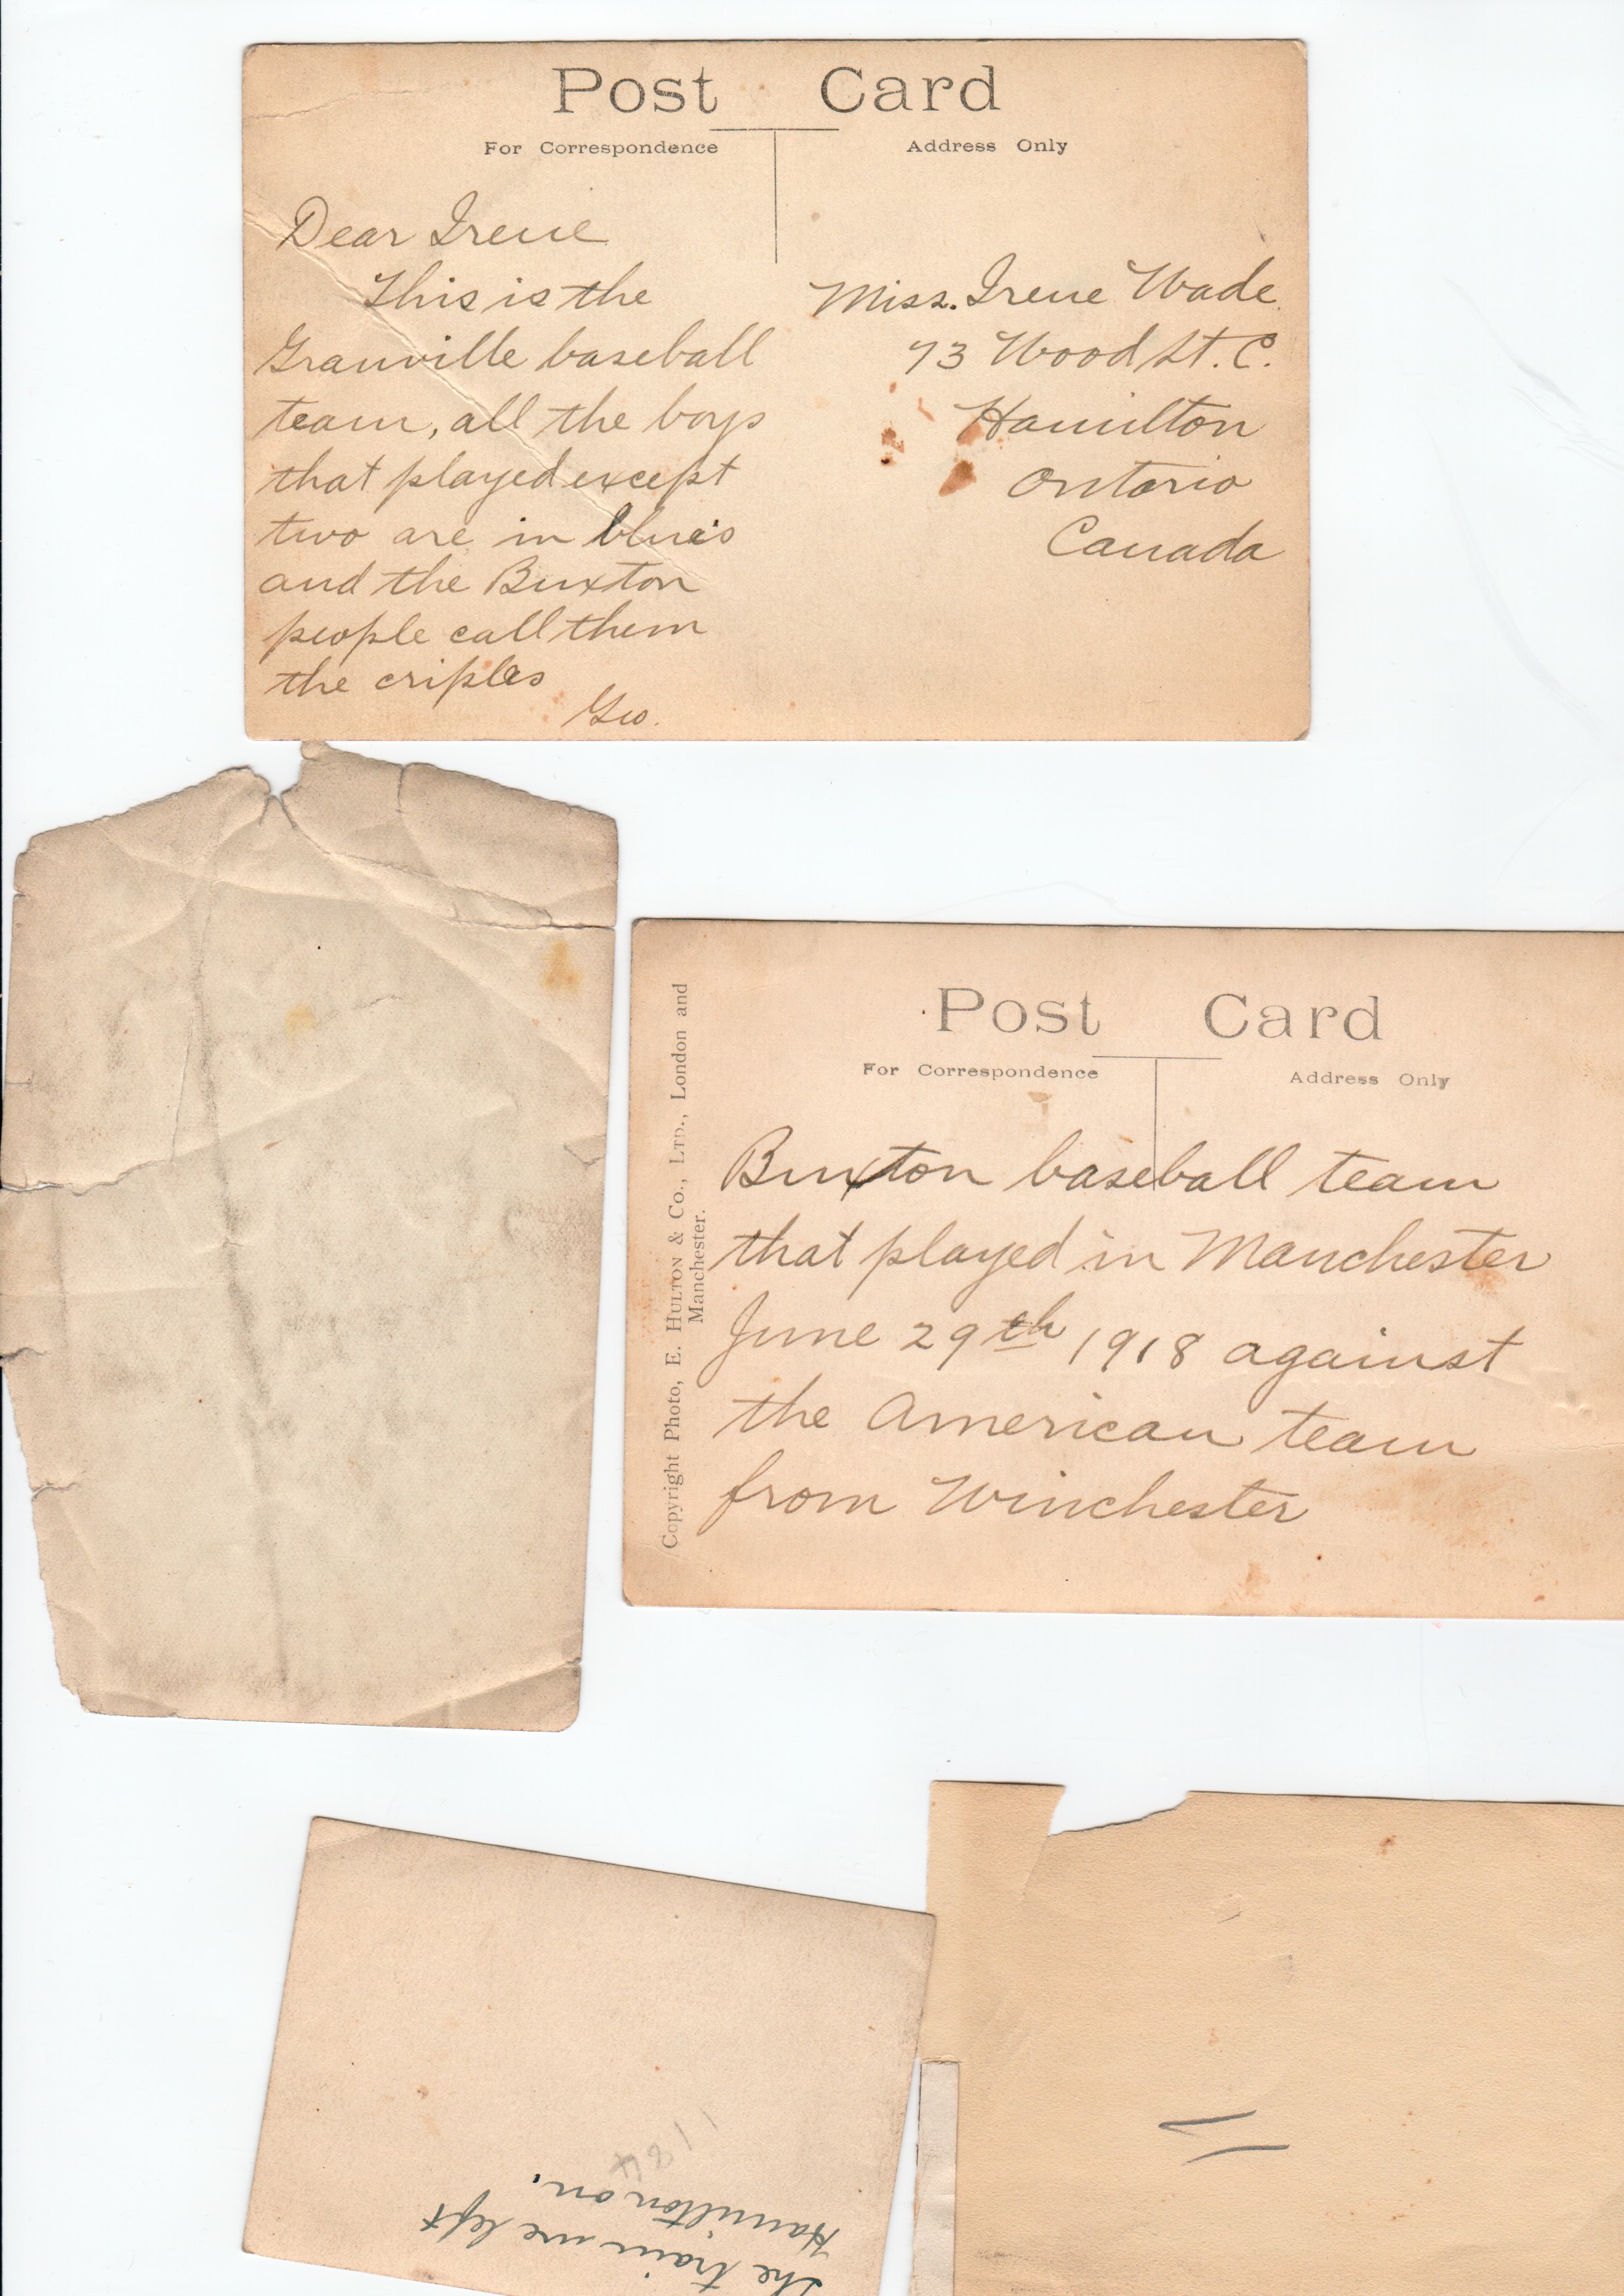 Post Card
For Correspondence
Address Only
Dear Irene
This is the
Granville baseball
team, all the boys
that played except
two are in blues
and the Buxton
people call them
the criples
Geo.
Miss. Irene Wade
73 Wood St. E.
Hamilton
Ontario
Canada
Post Card
For Correspondence
Address Only
Copyright Photo, E. Hulton & Co., Ltd., London and
Manchester.
Buxton baseball team
that played in Manchester
June 29th 1918 against
the American team
from Winchester
the train we left
Hamilton on.